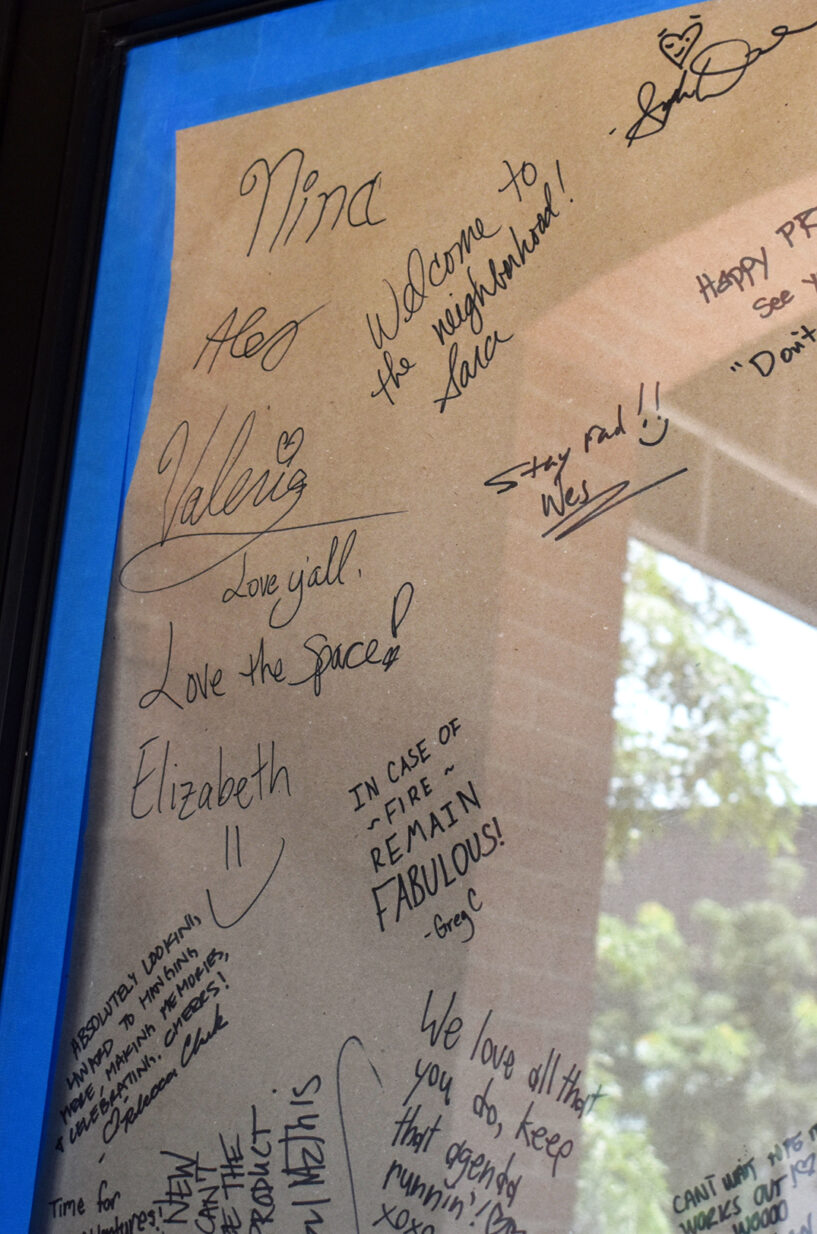 Nina
Welcome to
the neighborhood!
Sara
Alex
HAPPY
See
"Don't
Stay rad!!
Wes
Valeria
Love y'all.
Love the space!
Elizabeth
IN CASE OF
~ FIRE ~
REMAIN
FABULOUS!
-Greg C
ABSOLUTELY LOOKING
TO HANGING
MORE, MAKING MEMORIES,
& CELEBRATING. CHEERS!
Rebecca
We love all that
you do, keep
that agenda
runnin'!
xoxo
Time for
NEW
CAN'T
THE
PRODUCT
CANT WAIT
WORKS OUT!
WOOOO